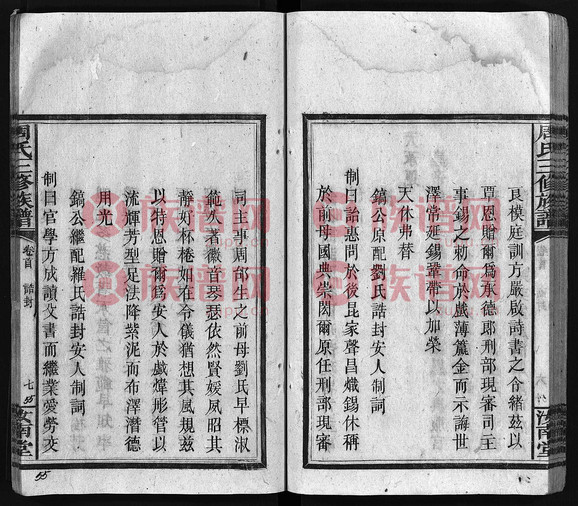 周氏三修族譜
卷首 誥封
六
汝南堂
良模庭訓方嚴啟詩書之令緒茲以
覃恩贈爾爲承德郎刑部現審司主
事錫之勅命於戲薄籯金而示誨世
澤常延錫鞶帶以加榮
天休弗替
鎬公原配劉氏誥封安人制詞
制曰詒惠問於後昆家聲昌熾錫休稱
於前母國典崇閎爾原任刑部現審
司主事周郃生之前母劉氏早標淑
範夙著徽音琴瑟依然賢媛夙昭其
靜好杯棬如在令儀猶想其風規茲
以特恩贈爾爲安人於戲煒彤管以
流輝芳型足法降紫泥而布澤潛德
用光
鎬公繼配羅氏誥封安人制詞
制曰官學方成讀文書而繼業愛勞交
周氏三修族譜
卷首
誥封
七
汝南堂
55
族谱网